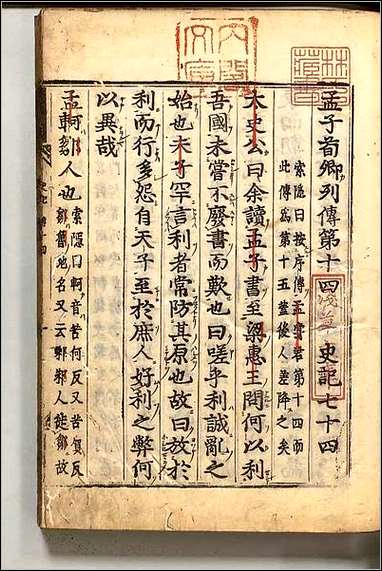 孟子荀卿列傳第十四
史記七十四
索隱曰按序傳孟嘗君第十四而
此傳爲第十五蓋後人差降之矣
太史公曰余讀孟子書至梁惠王問何以利
吾國未嘗不廢書而歎也曰嗟乎利誠亂之
始也夫子罕言利者常防其原也故曰放於
利而行多怨自天子至於庶人好利之弊何
以異哉
孟軻鄒人也
索隱曰軻音苦何反又苦賀反
鄒魯地名又云邾邾人徙鄒故
林
藏書
内閣
文庫